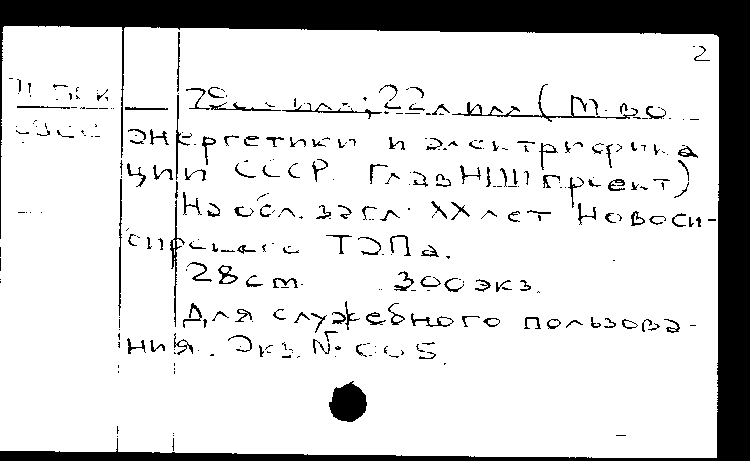 2
79с. илл; 22л илл (М-во
энергетики и электрифика
ции СССР. ГлавНИИпроект)
На обл. загл. XX лет Новоси-
бирского ТЭПа.
28см. 300 экз.
Для служебного пользова-
ния. Экз. № 005.